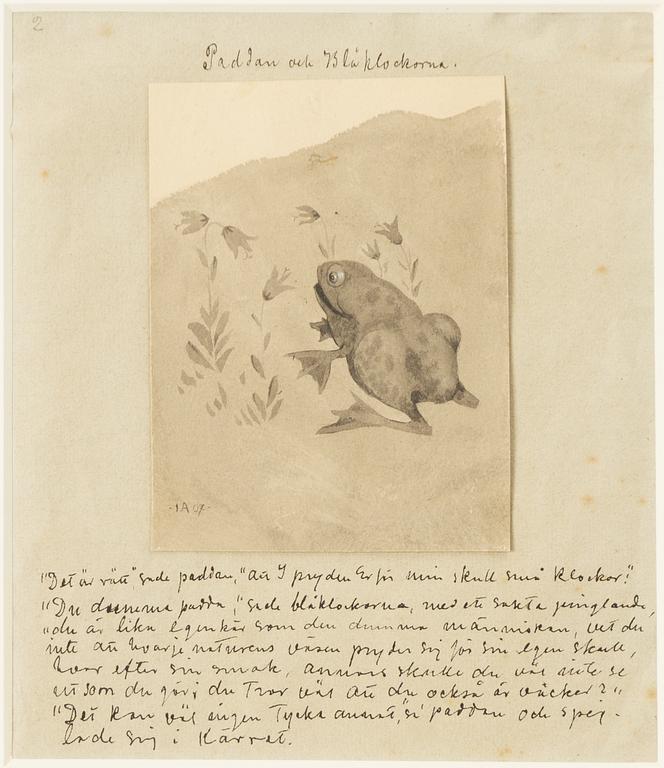 2
Paddan och Blåklockorna.
-IA07-
"Det är rätt", sade paddan, "att I pryden Er för min skull små klockor!"
"Du dumma padda", sade blåklockorna, med ett sakta pinglande,
"du är lika egenkär som den dumma människan, vet du
inte att hvarje naturens väsen pryder sig för sin egen skull,
hvar efter sin smak, annars skulle du väl inte se
ut som du gör; du tror väl att du också är vacker?"
"Det kan väl ingen tycka annat", sa' paddan och speg-
lade sig i Kärret.